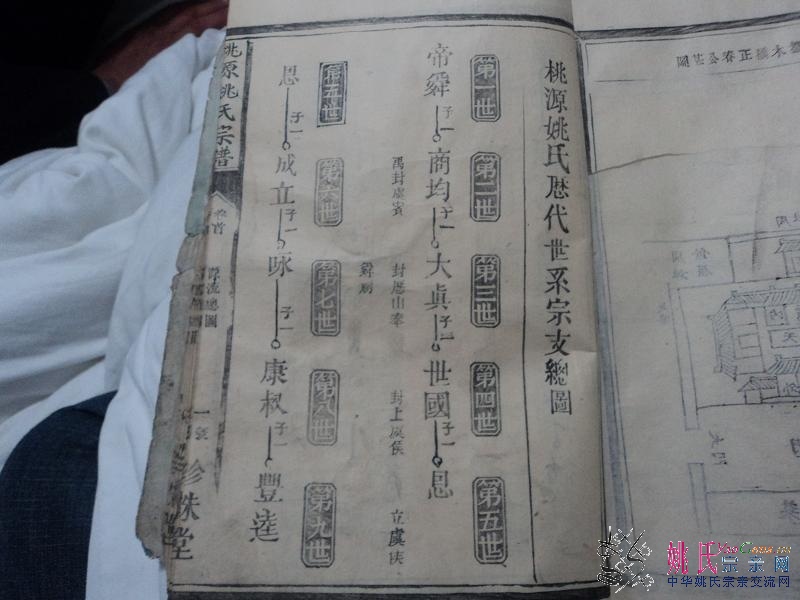 桃源姚氏歷代世系宗支總圖
第一世 第二世 第三世 第四世 第五世
帝舜 子一 商均 子一 大眞 子二 世國 子一 恩
禹封虞賓 封歷山奉 封上虞侯 立虞侯
第五世 第六世 第七世 第八世 第九世
恩 子一 成立 子一 咏 子一 康權 子一 豐逵
桃源姚氏宗譜 卷首 珍珠堂
正春公
姚氏宗亲网
中华姚氏宗亲交流网